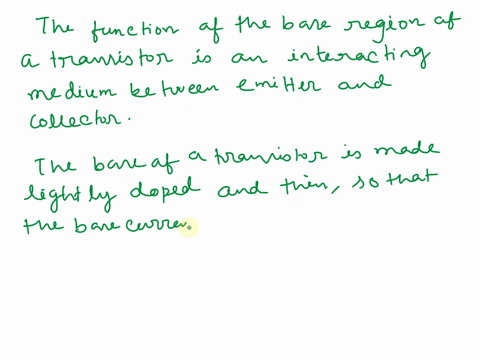 The function of the base region of
a transistor is an interacting
medium between emitter and
collector.
The base of a transistor is made
lightly doped and thin, so that
the base curren